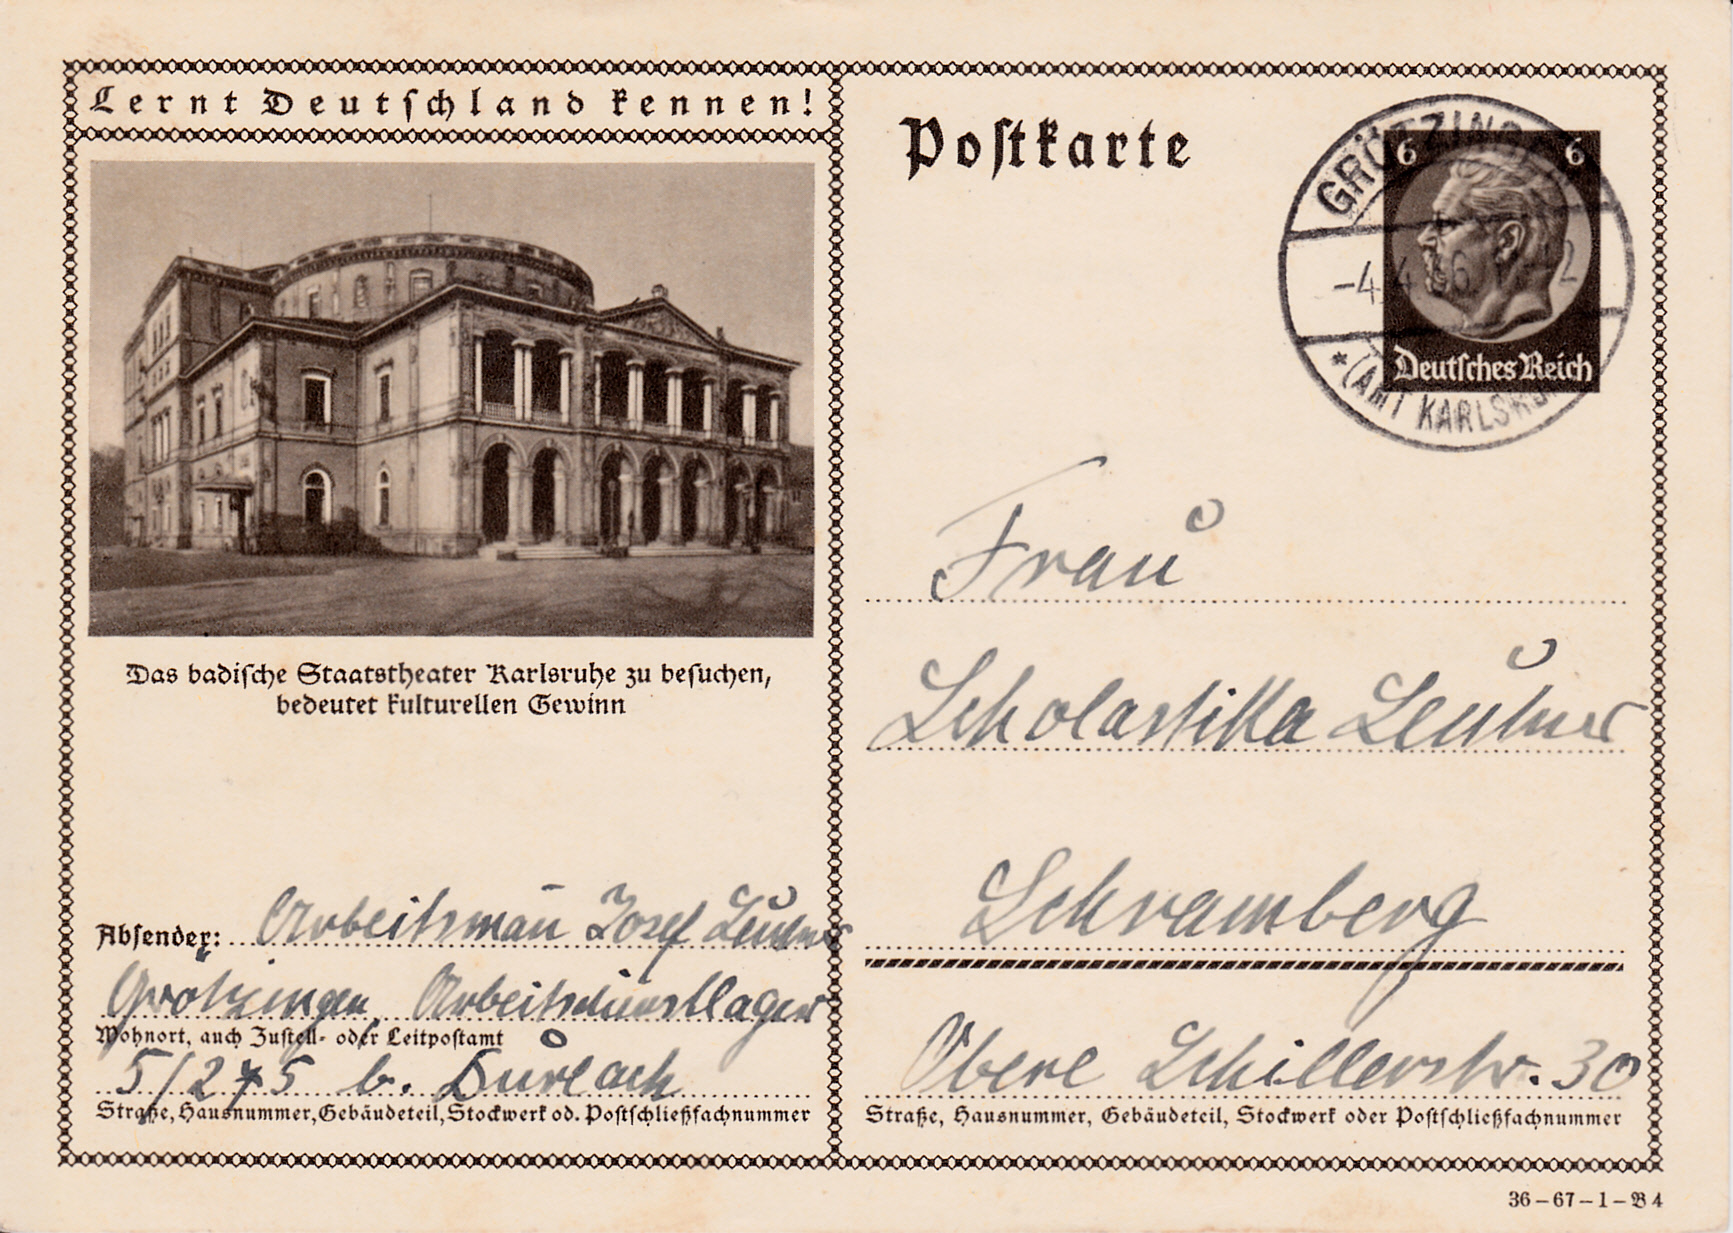 Lernt Deutschland kennen!
Das badische Staatstheater Karlsruhe zu besuchen,
bedeutet kulturellen Gewinn
Absender: Arbeitsmañ Josef
Grötzingen, Arbeitsdienstlager
Wohnort, auch Zustell- oder Leitpostamt
5/275 b. Durlach
Straße, Hausnummer, Gebäudeteil, Stockwerk od. Postschließfachnummer
Postkarte
GRÖTZING
6 6
-4.4
Deutsches Reich
* (AMT KARLSRU
Frau
Scholastika
Schramberg
Obere Schillerstr. 30
Straße, Hausnummer, Gebäudeteil, Stockwerk oder Postschließfachnummer
36-67-1-B4